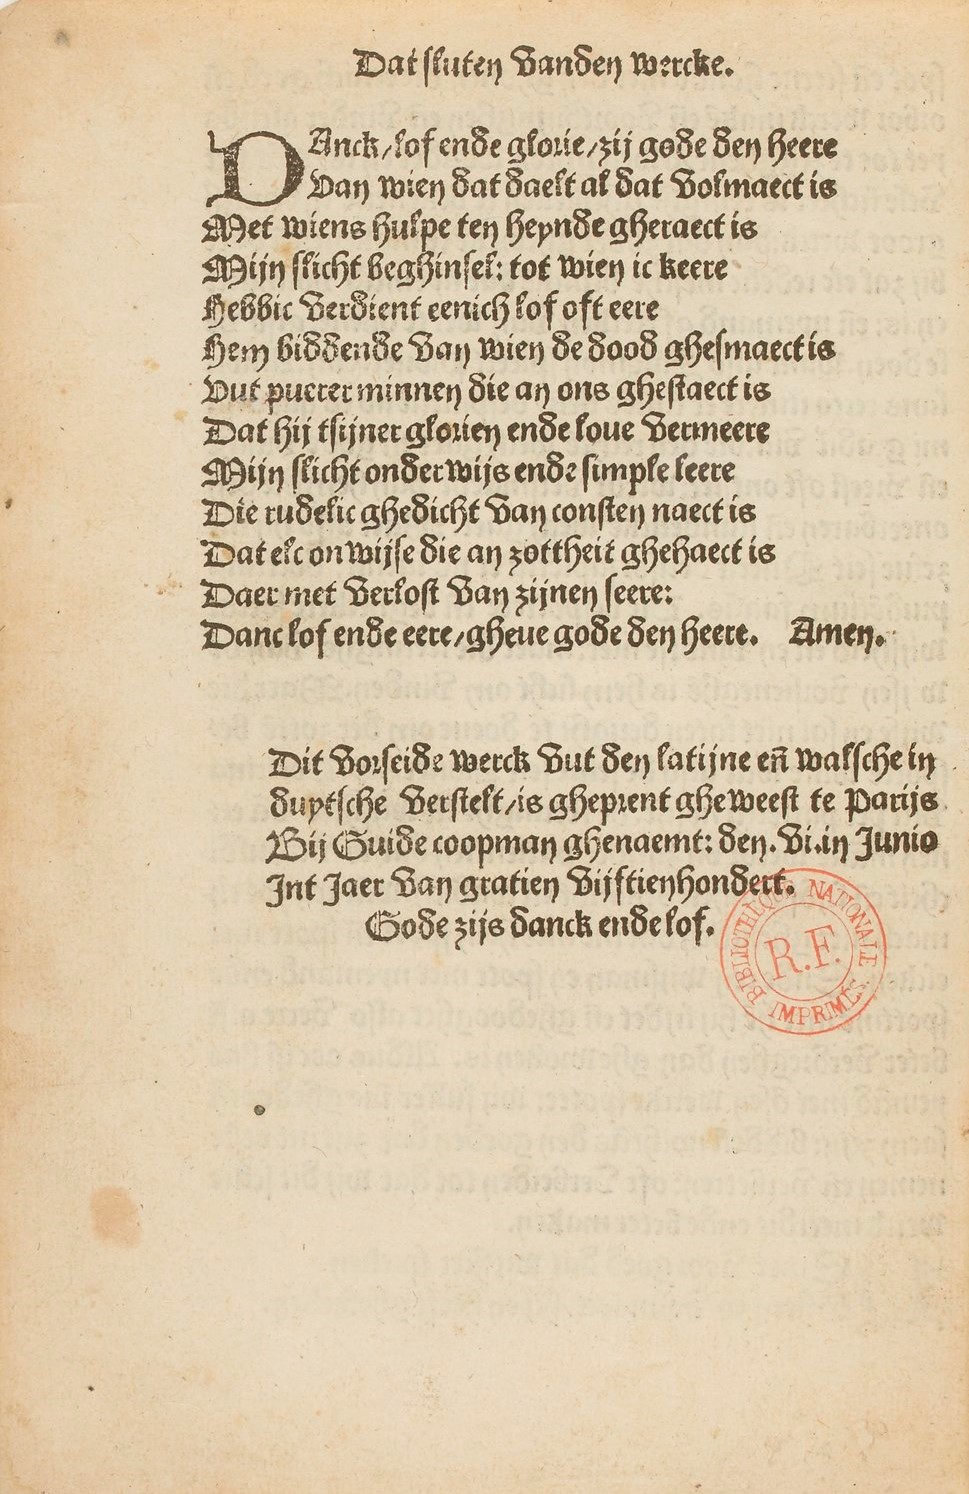 Dat sluten vanden wercke.
DAnck/lof ende glorie/zij gode den heere
Van wien dat daelt al dat volmaect is
Met wiens hulpe ten heynde gheraect is
Mijn slicht beghinsel: tot wien ic keere
Hebbic verdient eenich lof oft eere
Hem biddende van wien de dood ghesmaect is
Vut puerer minnen die an ons ghestaect is
Dat hij tsijner glorien ende loue vermeere
Mijn slicht onderwijs ende simple leere
Die rudelic ghedicht van consten naect is
Dat elc onwijse die an zottheit ghehaect is
Daer met verlost van zijnen seere:
Danc lof ende eere/gheue gode den heere. Amen.
Dit vorseide werck vut den latijne en̄ walsche in
duytsche verstelt/is gheprent gheweest te Parijs
Bij Guide coopman ghenaemt: den.vi.in Junio
Int Jaer van gratien vijftienhondert.
Gode zijs danck ende lof.
BIBLIOTHEQUE NATIONALE
R.F.
IMPRIMÉS.